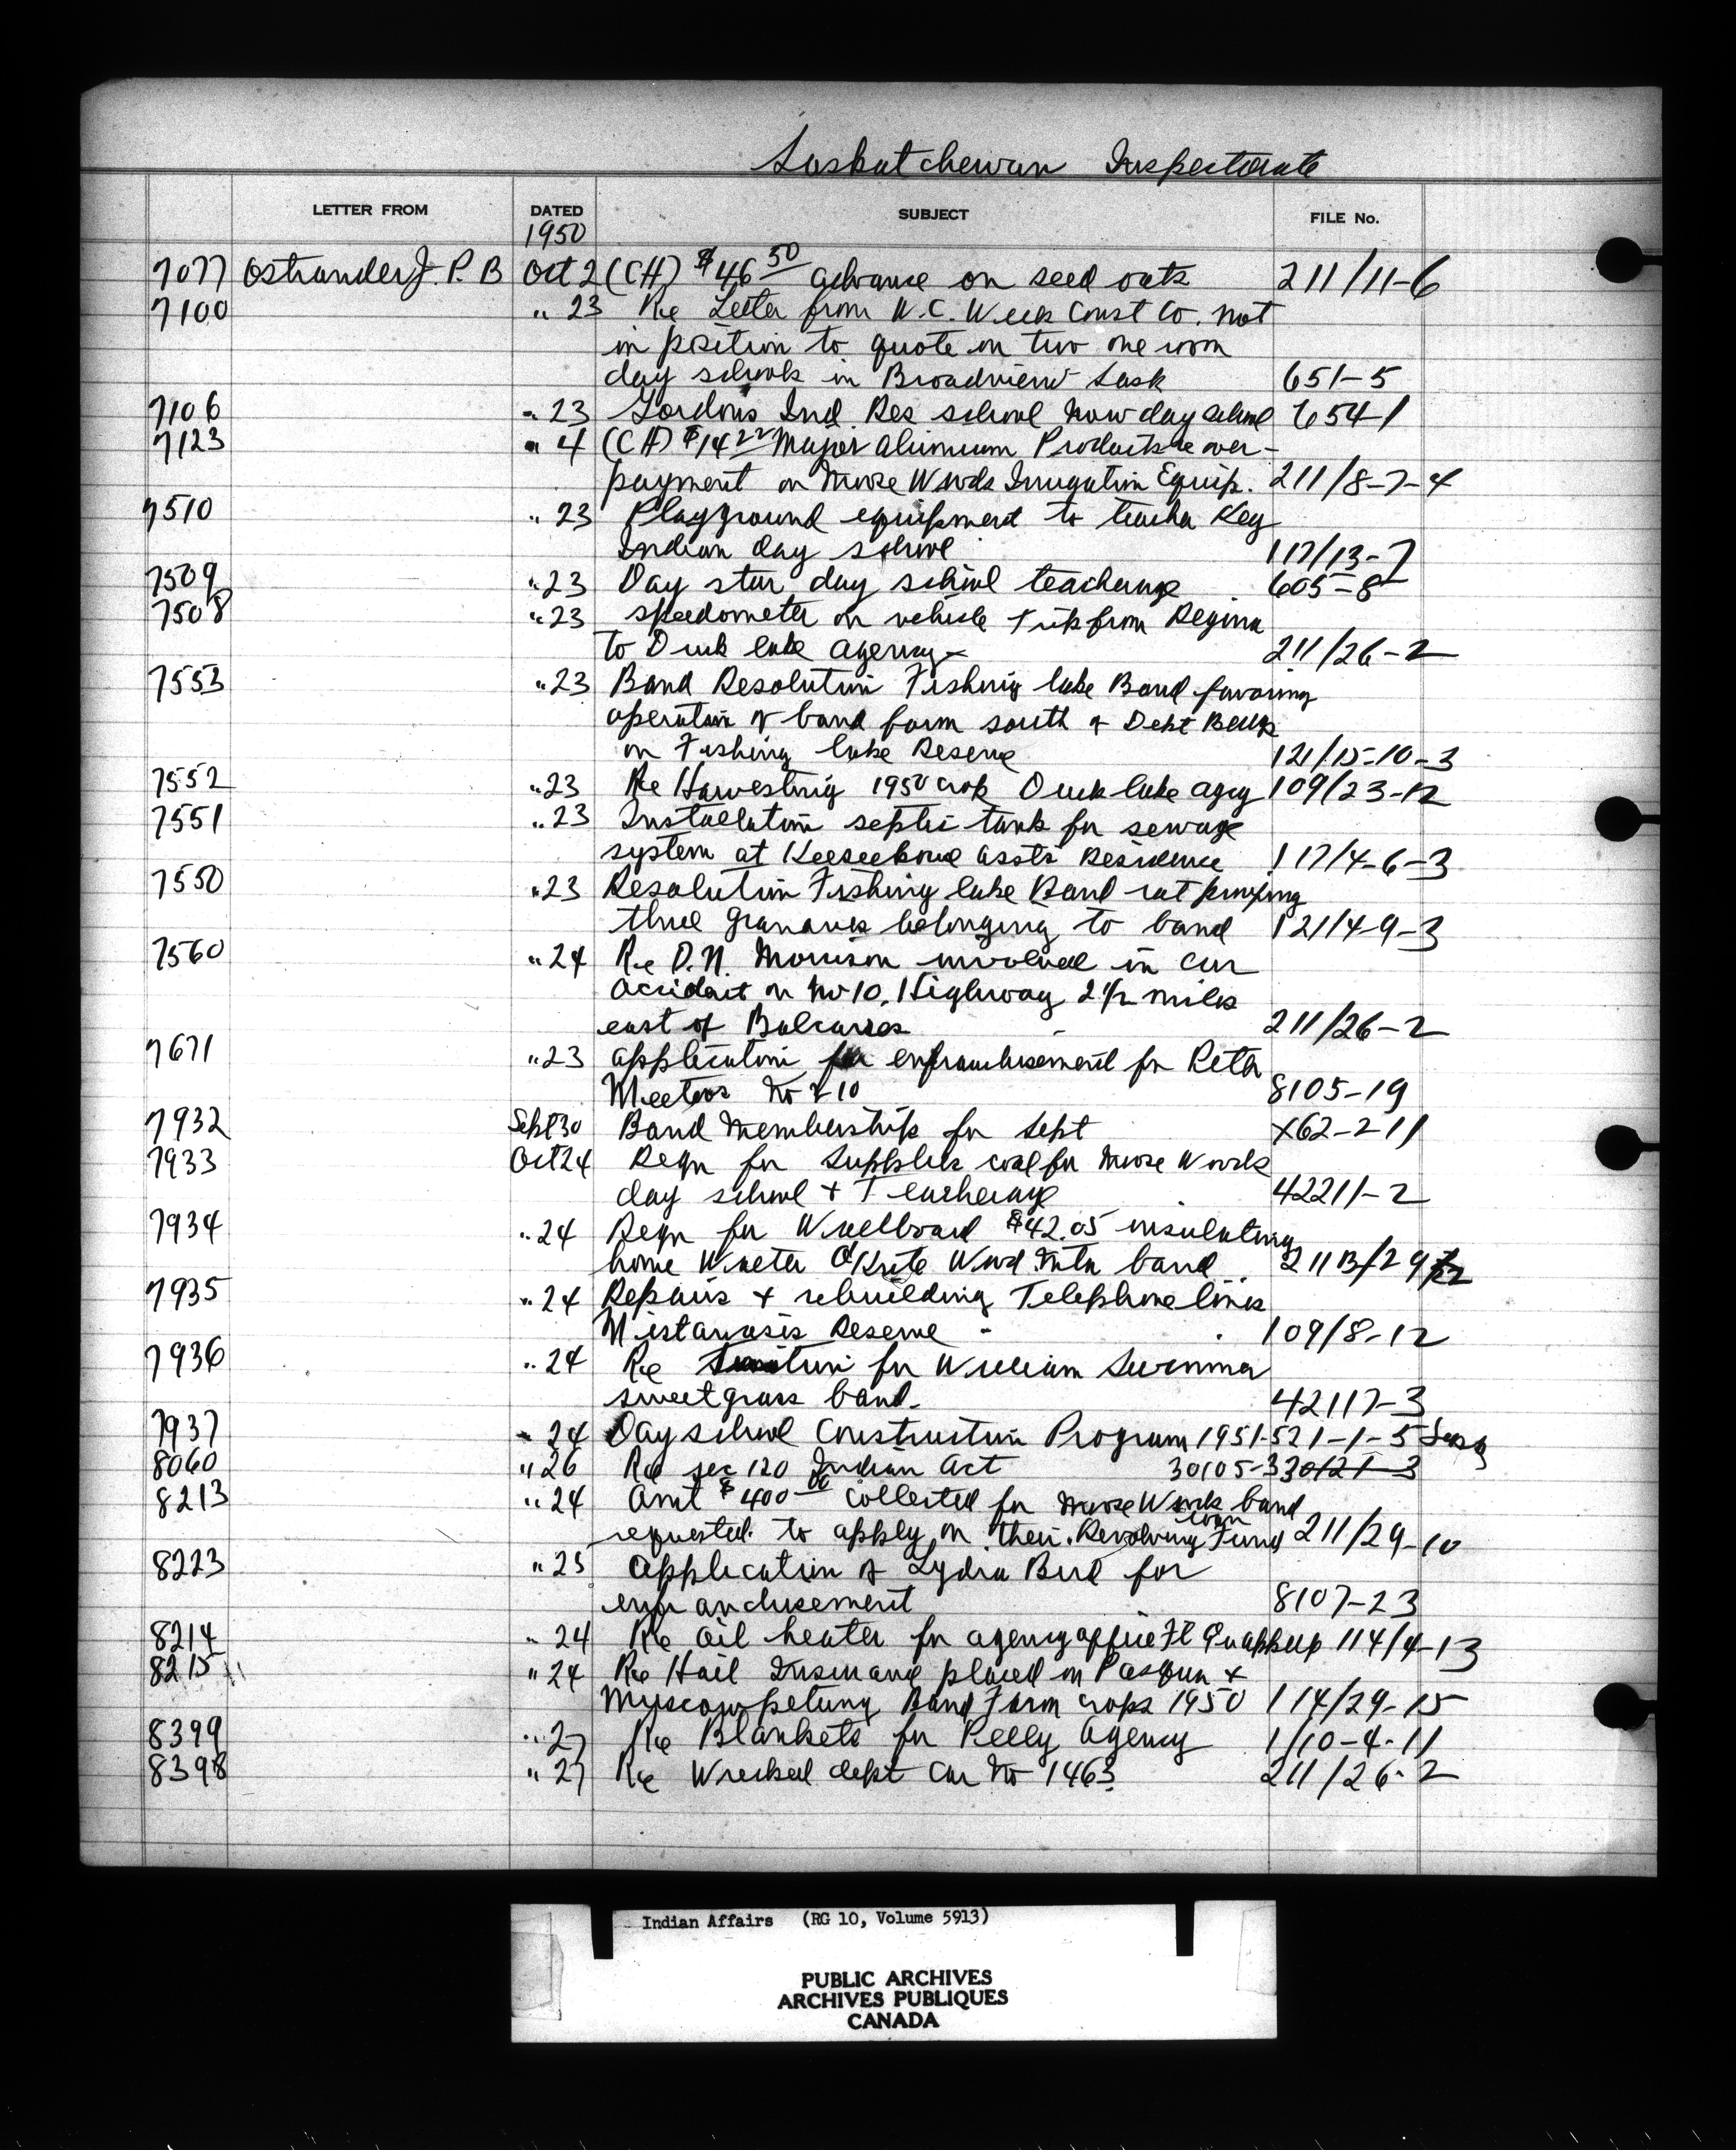 Saskatchewan Inspectorate
LETTER FROM DATED SUBJECT FILE No.
1950
7077 Ostrander J. P. B Oct 2 (CH) $46 50 advance on seed oats 211/11-6
7100 " 23 Re Letter from W.C. Wells Const Co. not
in position to quote on two one room
day schools in Broadview Sask 651-5
7106 " 23 Gordons Ind. Res school now day school 654-1
7123 " 4 (CH) $14 22 Major Alumium Products re over-
payment on Moose Woods Irrugation Equip. 211/8-7-4
7510 " 23 Playground equipment to teacher Key
Indian day school 117/13-7
7509 " 23 Day star day school teacherage 605-8
7508 " 23 speedometer on vehicle trip from Regina
to Duck lake agency 211/26-2
7553 " 23 Band Resolution Fishing lake Band favoring
operation of band farm south of Dept Bldgs
on Fishing lake Reserve 121/15-10-3
7552 " 23 Re Harvesting 1950 crop Duck lake agcy 109/23-12
7551 " 23 Installation septic tank for sewage
system at Keeseekouse assts Residence 117/4-6-3
7550 " 23 Resolution Fishing lake Band rat proofing
three granaries belonging to band 121/4-9-3
7560 " 24 Re D.N. Morrison involved in car
accident on No 10. Highway 2 1/2 miles
east of Balcarres 211/26-2
7671 " 23 application for enfranchisement for Reta
Meetoos No 210 8105-19
7932 Sept 30 Band Membership for Sept X62-211
7933 Oct 24 Reqn for supplies coal for Moose Woods
day school + Teacherage 42211-2
7934 " 24 Reqn for Wallboard $42.05 insulating
home Walter Wood Mtn band 211B/29
7935 " 24 Repairs + rebuilding Telephone lines
Mistawasis Reserve - 109/8-12
7936 " 24 Re for William Swimmer
sweetgrass band. 42117-3
7937 " 24 Day school Construction Program 1951-52 1-1-5 Sask
8060 " 26 Re sec 120 Indian Act 30105-3 30121-3
8213 " 24 Amt $400 00 collected for Moose Woods band
loan
requested to apply on their Revolving Fund 211/29-10
8223 " 25 Application of Lydia Bird for
enfranchisement 8107-23
8214 " 24 Re oil heater for agency office Ft Quappelle 114/4-13
8215 " 24 Re Hail Insurance placed on Pasqua +
Muscowpetung Band Farm crops 1950 114/29-15
8399 " 27 Re Blankets for Pelly Agency 1/10-4-11
8398 " 27 Re Wrecked dept car No 1463 211/26-2
Indian Affairs (RG 10, Volume 5913)
PUBLIC ARCHIVES
ARCHIVES PUBLIQUES
CANADA